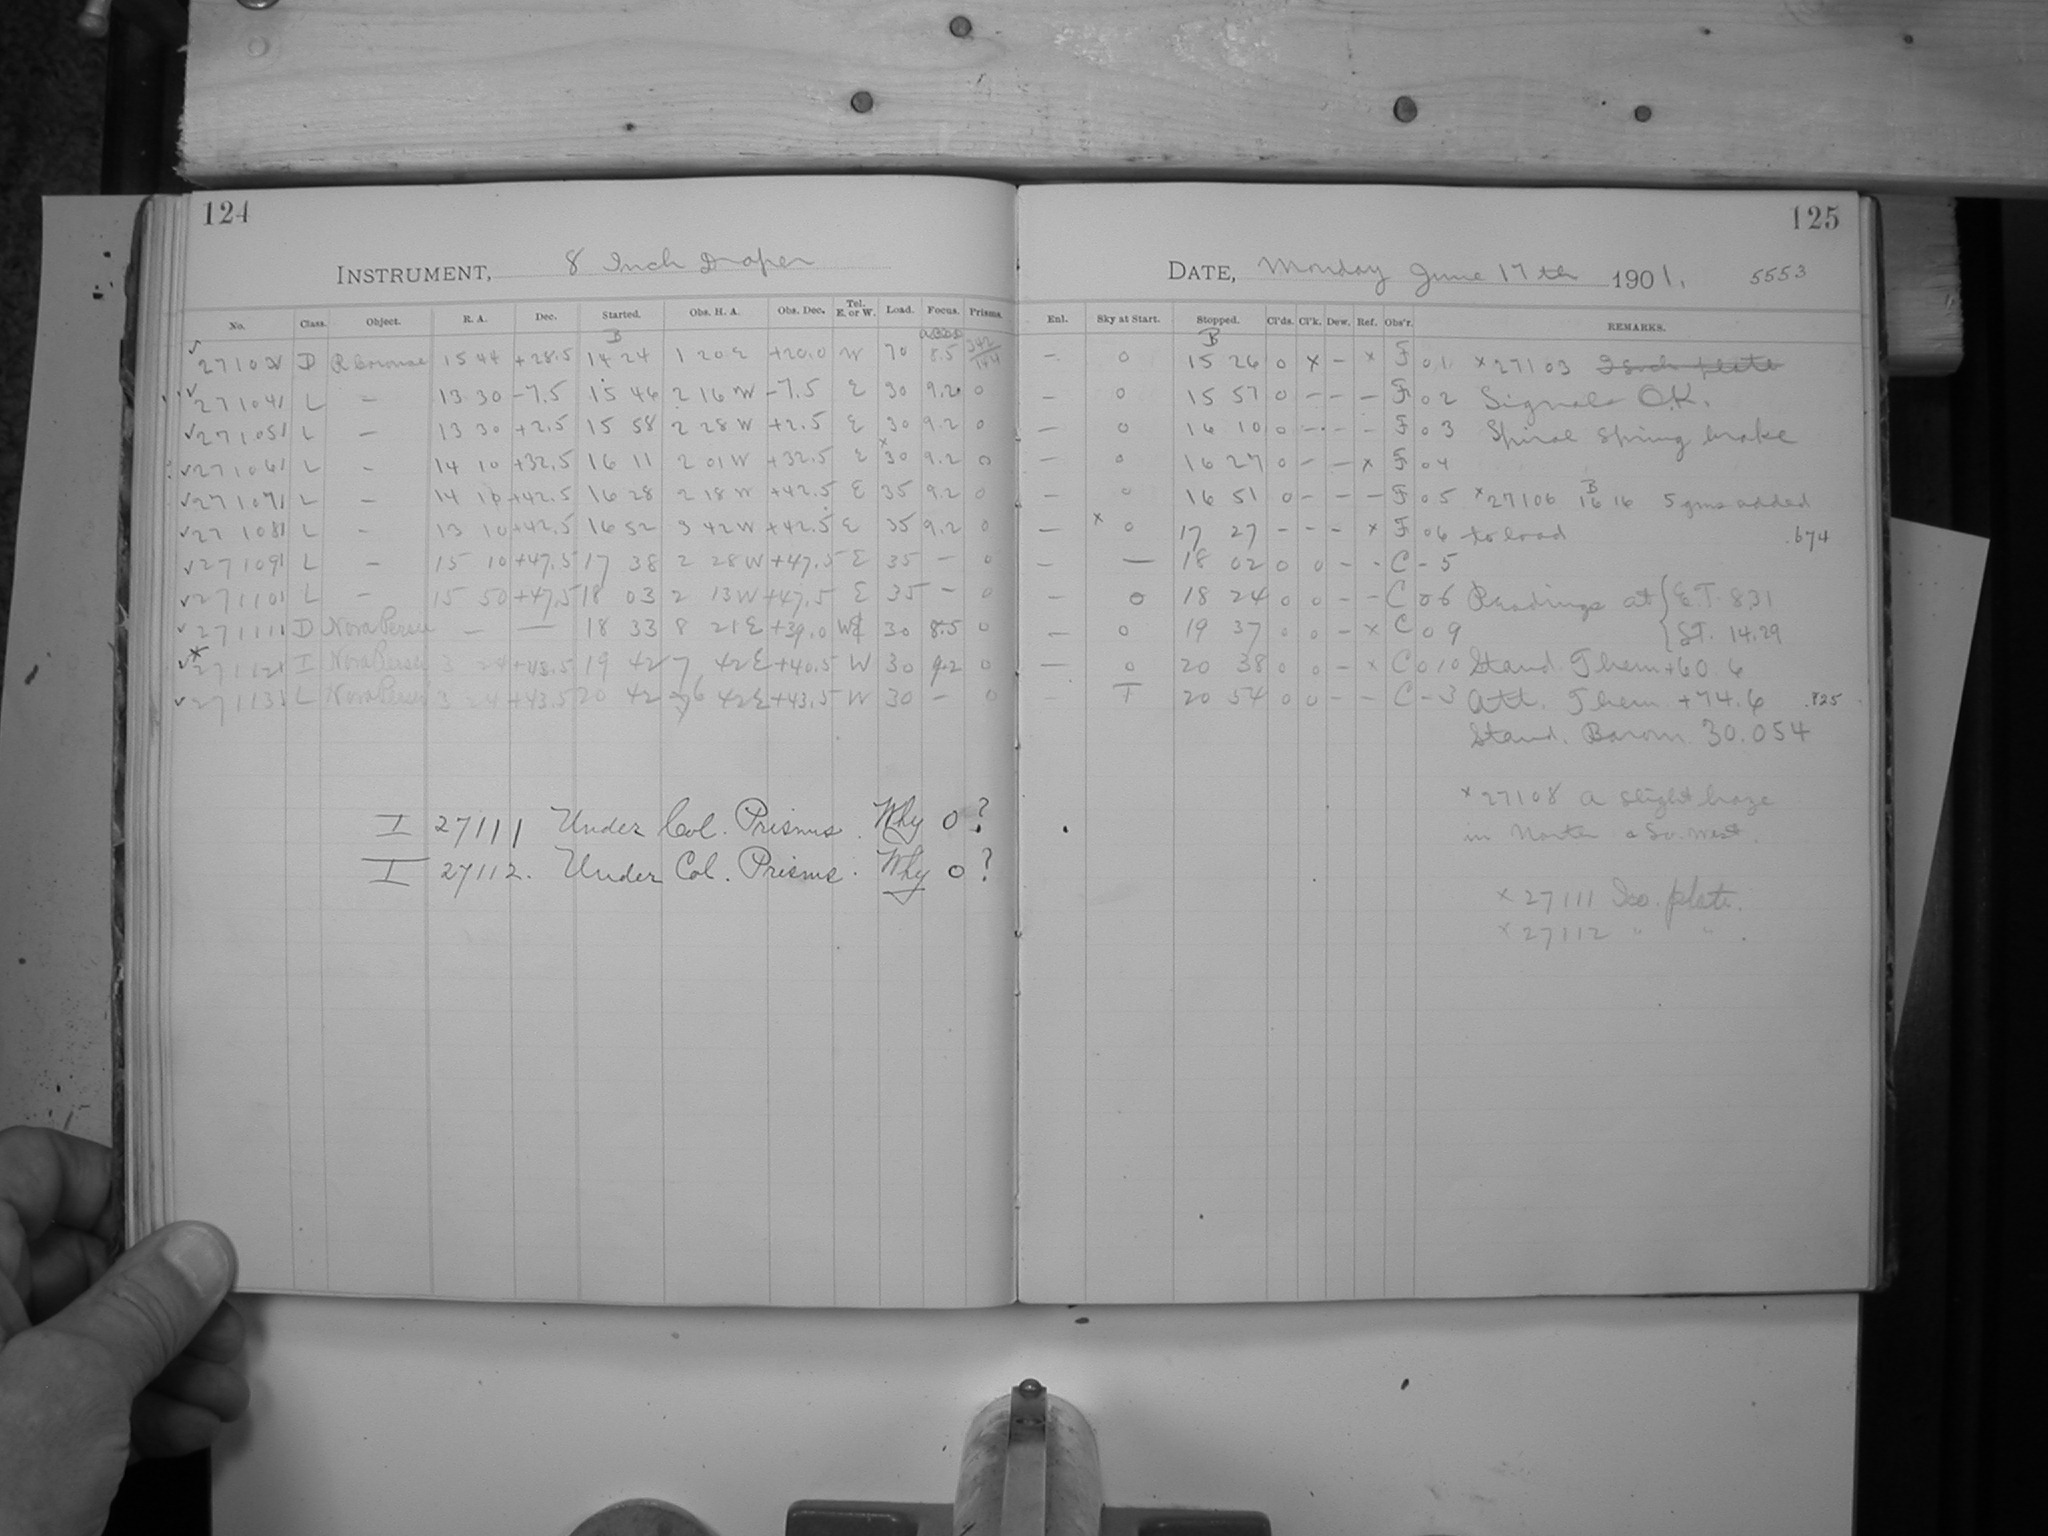 124
INSTRUMENT, 8 Inch Draper
No. Class. Object. R. A. Dec. Started. Obs. H. A. Obs. Dec. Tel. E. or W. Load. Focus. Prisms.
B
D R Coronae 15 44 +28.5 14 24 1 20 E +20.0 W 70 8.5
27104 L — 13 30 -7.5 15 46 2 16 W -7.5 E 30 9.2 0
27105 L — 13 30 +2.5 15 58 2 28 W +2.5 E 30 9.2 0
27106 L — 14 10 +32.5 16 11 2 01 W +32.5 E x30 9.2 0
27107 L — 14 10 +42.5 16 28 2 18 W +42.5 E 35 9.2 0
27108 L — 13 10 +42.5 16 52 3 42 W +42.5 E 35 9.2 0
27109 L — 15 10 +47.5 17 38 2 28 W +47.5 E 35 — 0
27110 L — 15 50 +47.5 18 03 2 13 W +47.5 E 35 — 0
27111 D Nova Persei — — 18 33 8 21 E +39.0 W 30 8.5 0
27112 I Nova Persei 3 24 +43.5 19 42 7 42 E +40.5 W 30 9.2 0
27113 L Nova Persei 3 24 +43.5 20 42 6 42 E +43.5 W 30 — 0
I 27111 Under Col. Prisms. Why 0?
I 27112. Under Col. Prisms. Why 0?
125
DATE, Monday June 17th 1901. 5553
Enl. Sky at Start. Stopped. Cl'ds. Cl'k. Dew. Ref. Obs'r. REMARKS.
B
— 0 15 26 0 x — x F 01 x27103
— 0 15 57 0 — — — F 02 Signals O.K.
— 0 16 10 0 — — — F 03 Spiral Spring brake
— 0 16 27 0 — — x F 04
— 0 16 51 0 — — — F 05 x27106 B 16 16 5 gms added
— x 0 17 27 — — — x F 06 to load .674
— — 18 02 0 0 — — C -5
0 18 24 0 0 — — C 06 Readings at { E.T. 8.31
— 0 19 37 0 0 — x C 09 { S.T. 14.29
— 0 20 38 0 0 — x C 010 Stand. Them +60.6
— T 20 54 0 0 — — C -3 Att. Them +74.6 .825
Stand. Barom 30.054
x27108 A slight haze
in North & So. West.
x 27111 Iso. plate.
x 27112 " " .